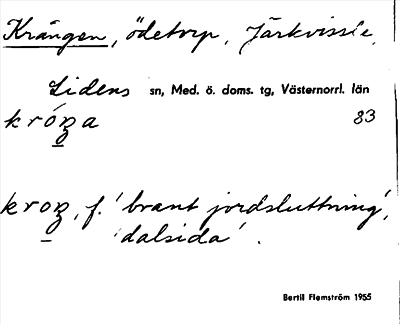 Krången, ödetorp, Järkvissle,
Lidens sn, Med. ö. doms. tg, Västernorrl. län
króŋa 83
kroŋ, f. 'brant jordsluttning',
'dalsida'.
Bertil Flemström 1955